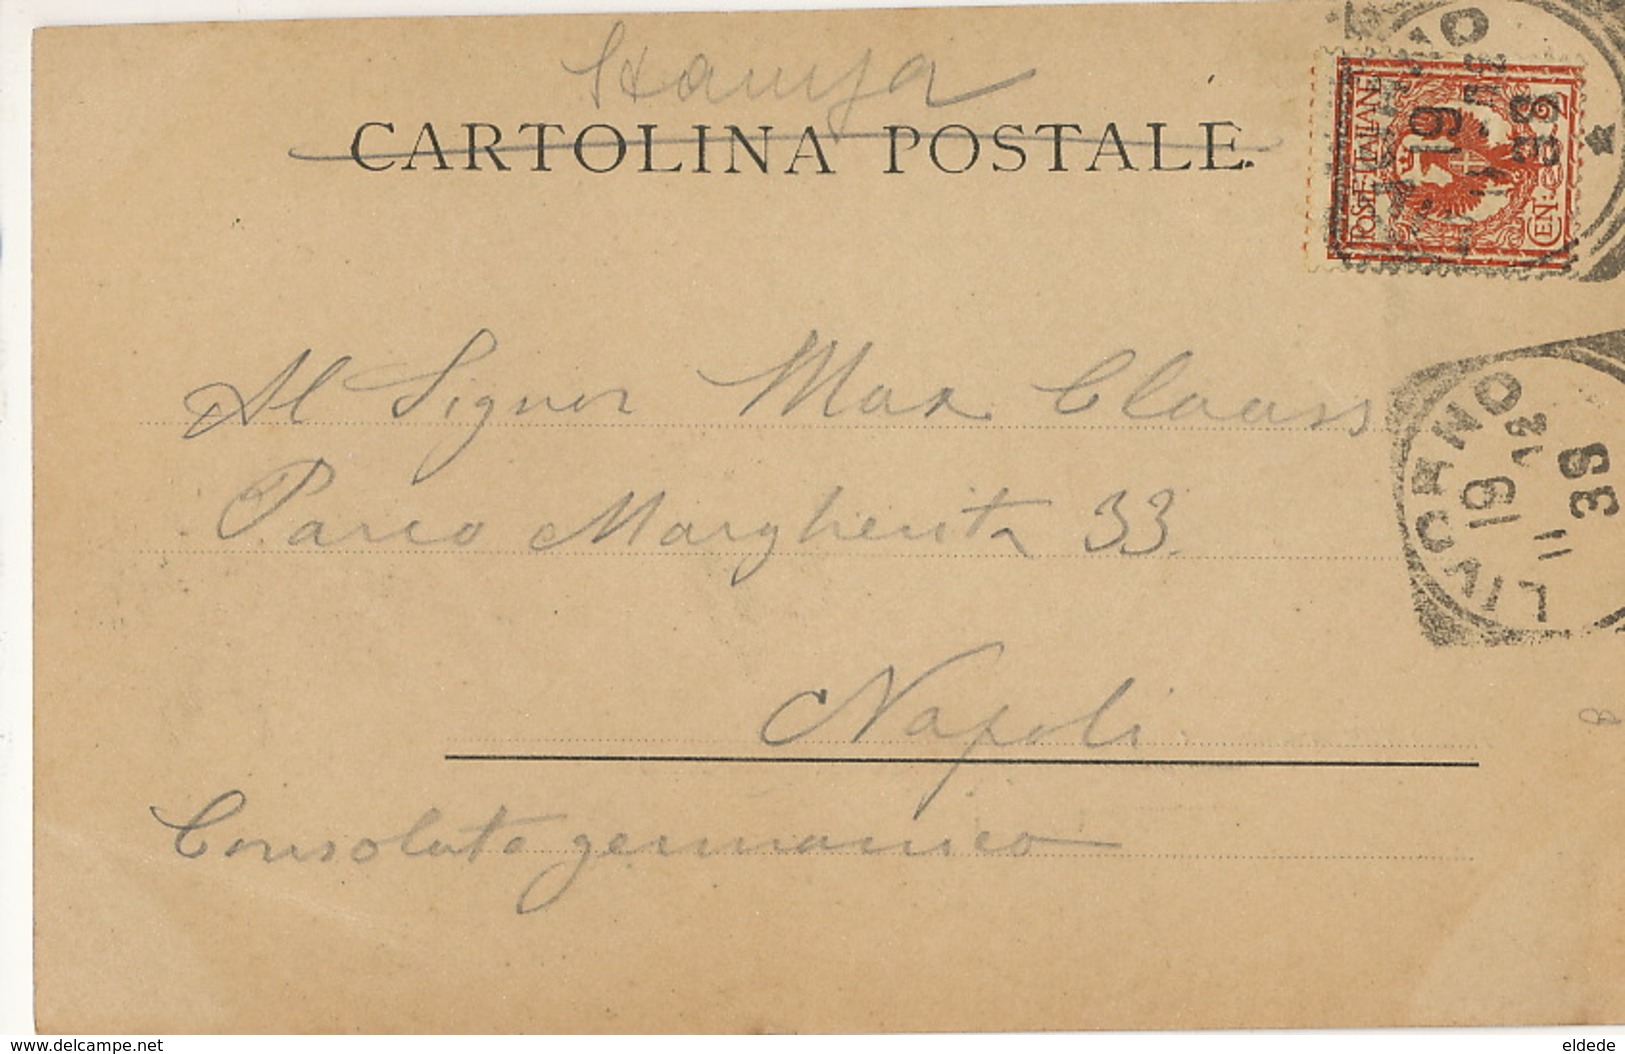 Stampa
CARTOLINA POSTALE.
POSTE ITALIANE
CEN: 2
LIVORNO
19
Al Signor Max Claass
Parco Margherita 33
Napoli
Consolato germanico
LIVORNO
19
12
11
3S
delcampe.net
eldede